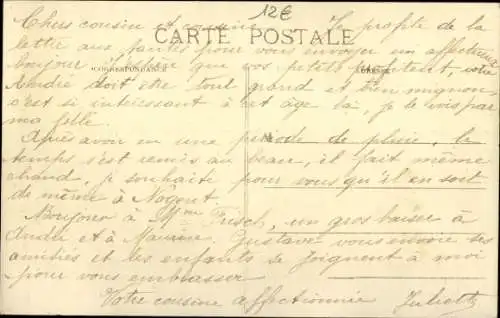 12€
Chers cousin et cousine Je profite de la
CARTE POSTALE
lettre aux pour vous envoyer un affectueux
CORRESPONDANCE
bonjour J'espère que vos petits profitent, votre
André doit être tout grand et bien mignon
c'est si intéressant à cet âge là, je le vois par
ma fille.
Après avoir eu une période de pluie, le
temps s'est remis au beau, il fait même
chaud, je souhaite pour vous qu'il en soit
de même à Nogent.
Bonjour à Mme Fresch, un gros baiser à
André et à Maurice. Gustave vous envoie ses
amitiés et les enfants se joignent à moi
pour vous embrasser
Votre cousine affectionnée Juliette